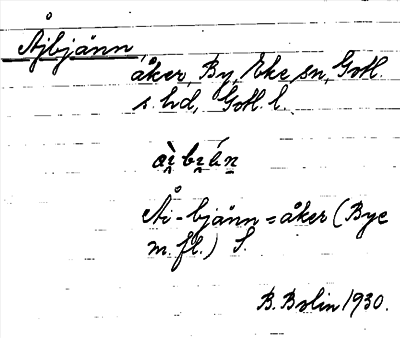 Åjbjänn,
åker, By, Eke sn, Gotl.
s. hd, Gotl. l.
Åi-bjänn = åker (Bye
m. fl.) S.
B. Bolin 1930.